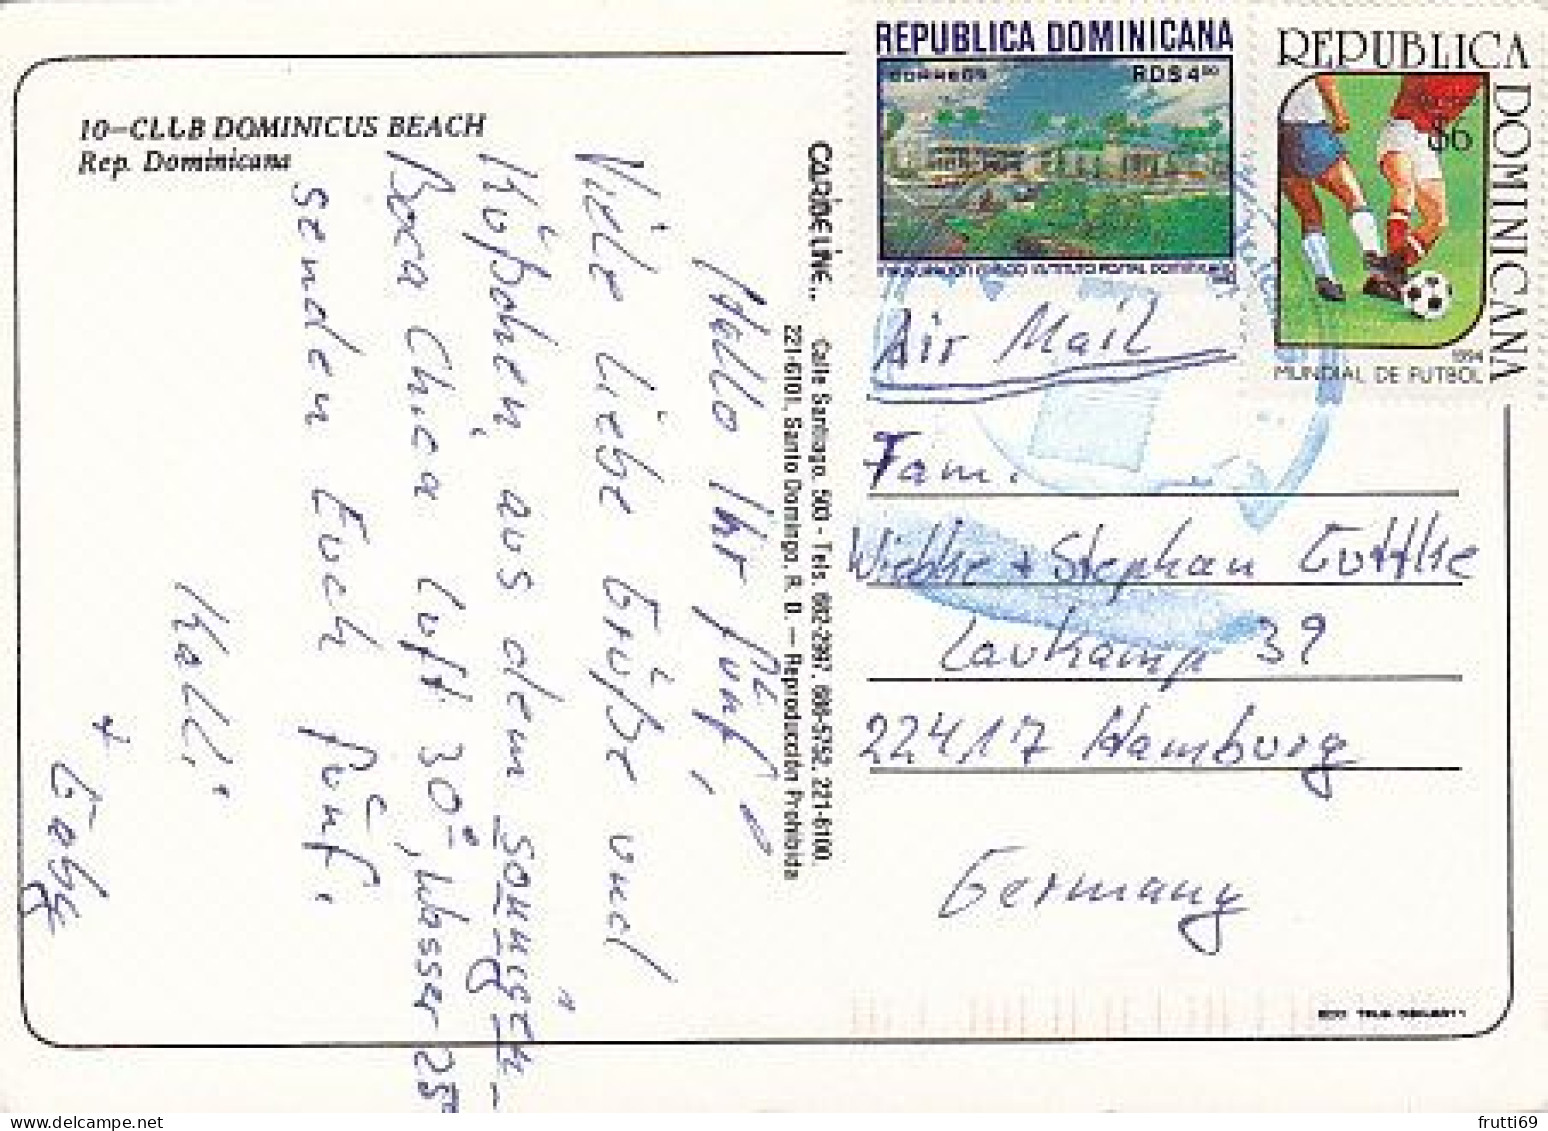 10—CLUB DOMINICUS BEACH
Rep. Dominicana
Hallo Ihr fünf,
Viele liebe Grüße und
Küßchen, aus dem sonnigen
Boca Chica Luft 30°, Wasser 25°
senden Euch fünf.
Kalli
+ Gaby
Calle Santiago, 503 - Tels. 682-2997, 689-5752, 221-6100,
221-6101, Santo Domingo, R. D. — Reproducción Prohibida
REPUBLICA DOMINICANA
CORREOS
RD$ 4
REPUBLICA DOMINICANA
$6
1994
MUNDIAL DE FUTBOL
Air Mail
Fam.
Wiebke + Stephan
39
22417 Hamburg
Germany
frutti69